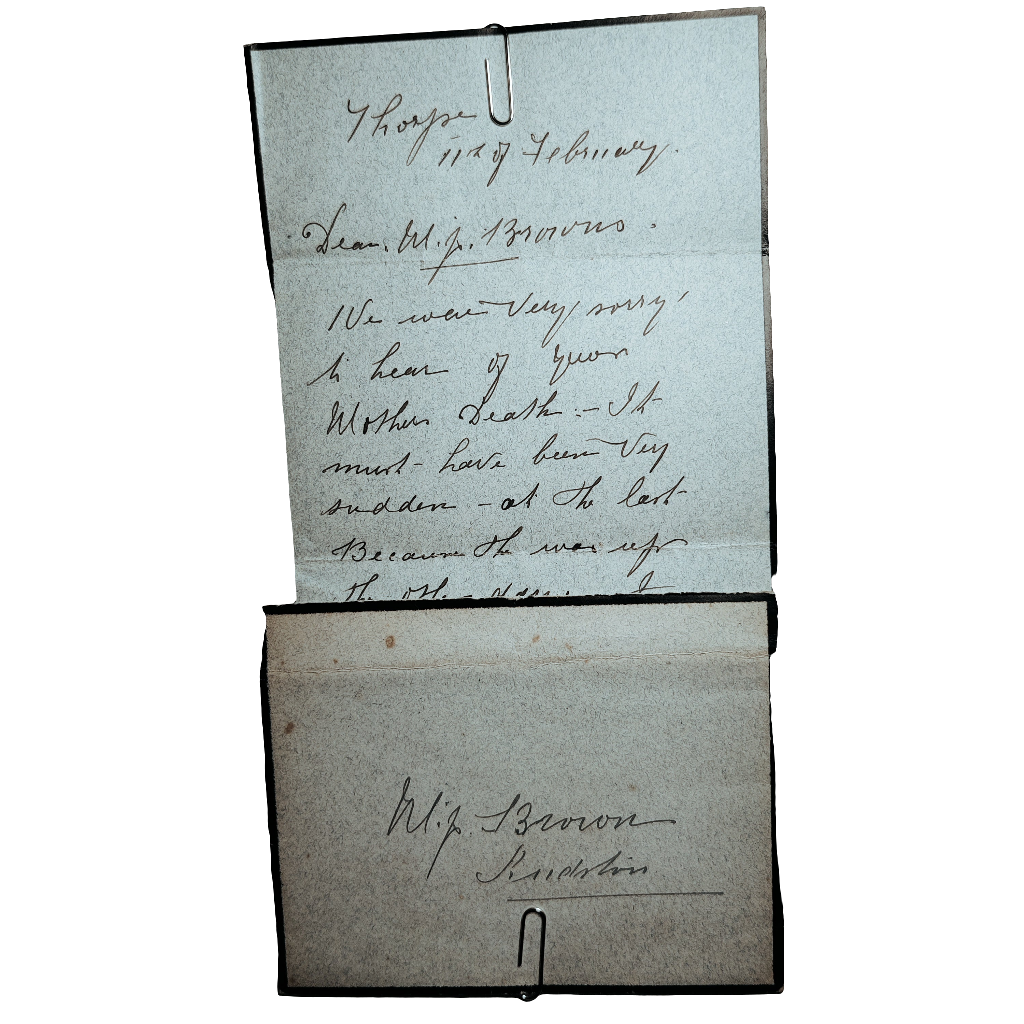 Thorpe
11th of February.
Dear. Miss. Browns.
We were Very sorry
to hear of your
Mothers Death:- It
must- have been Very
sudden - at the last-
Because she was up
the other
Miss. Brown
Rudston